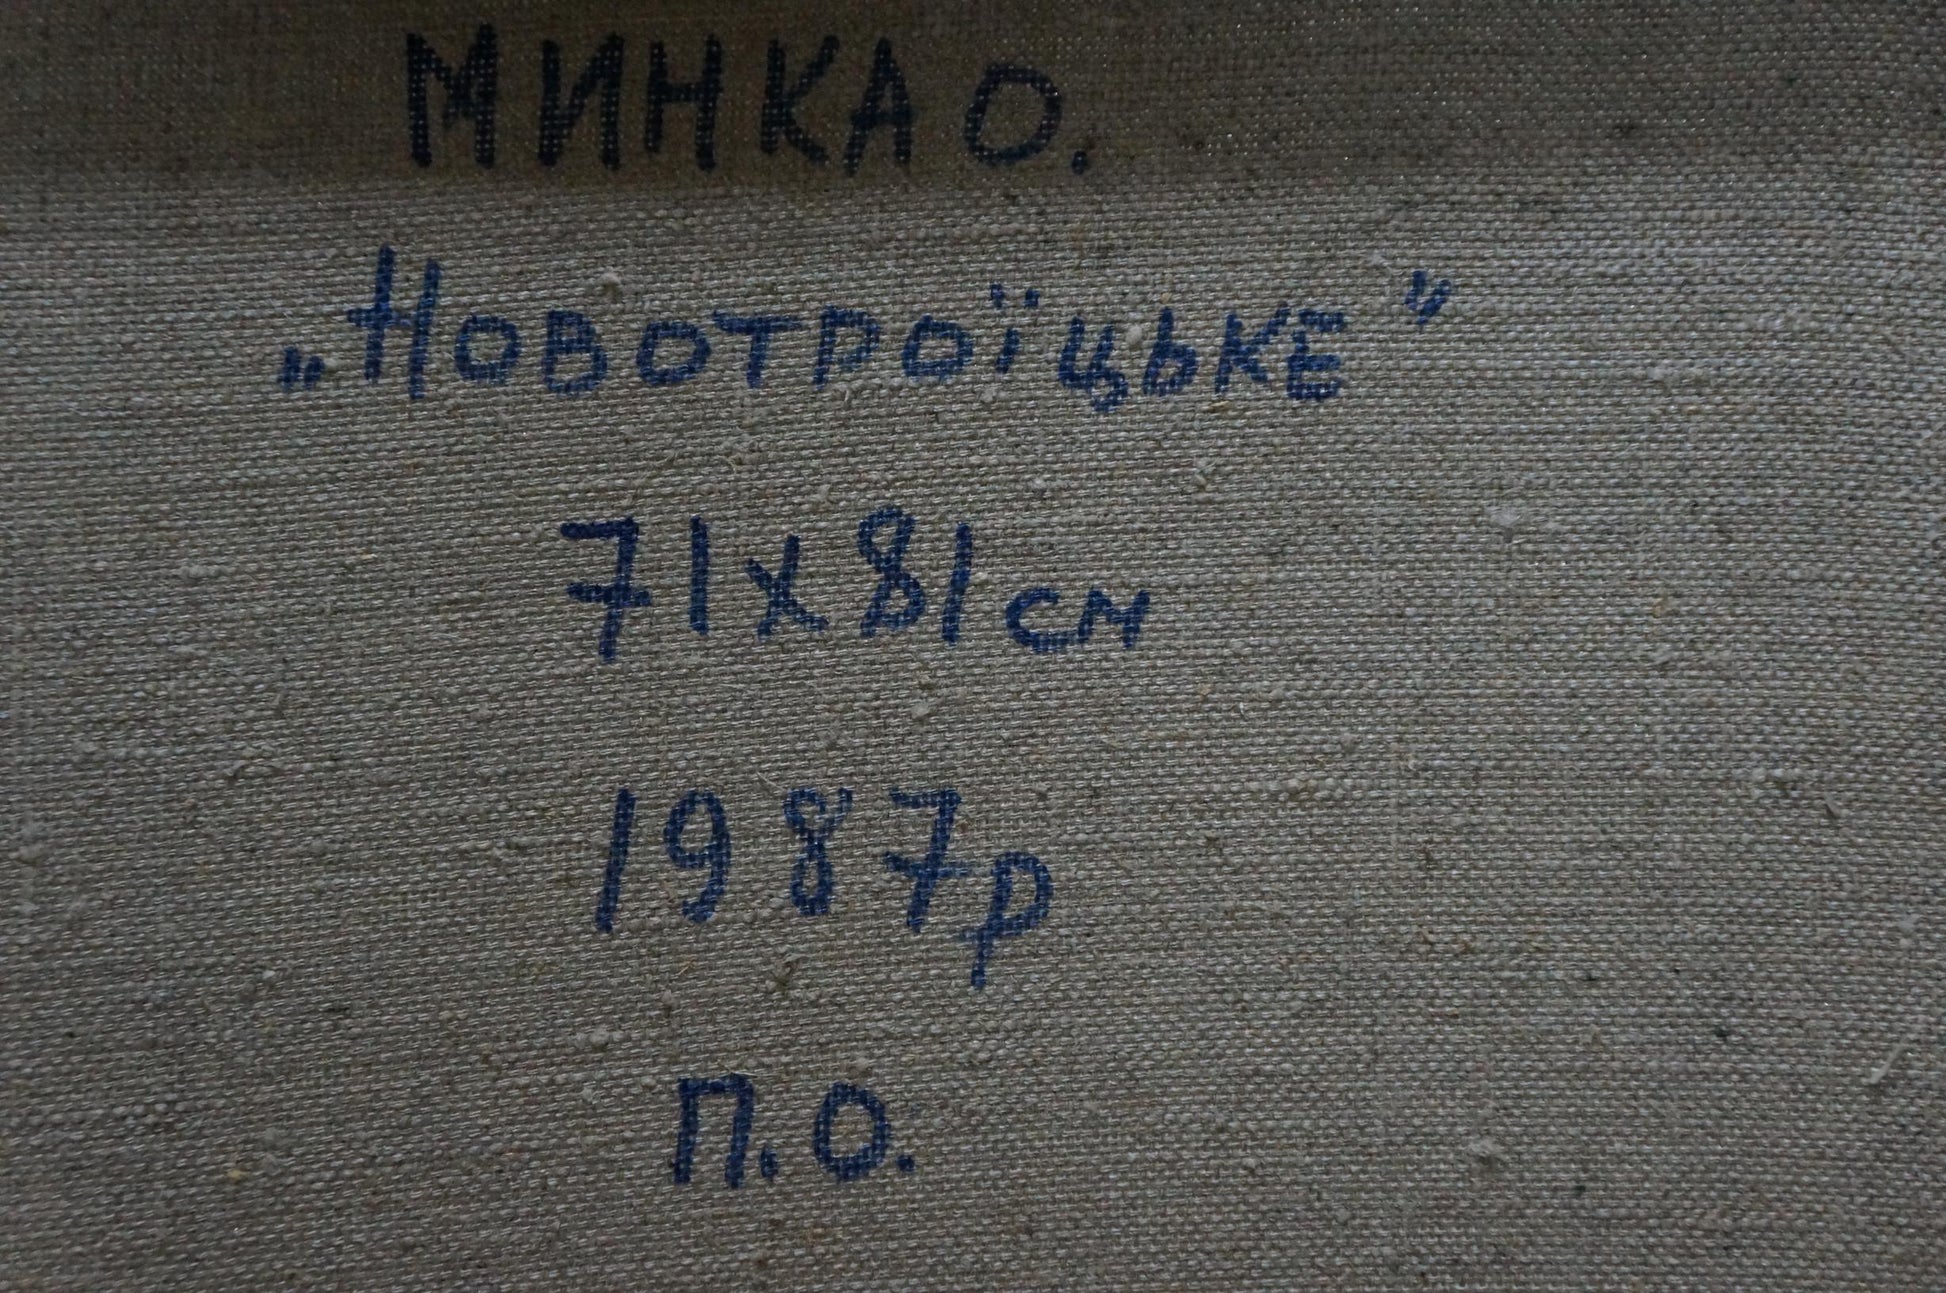 МИНКА О.
„Новотроїцьке"
71х81см
1987р
П.О.